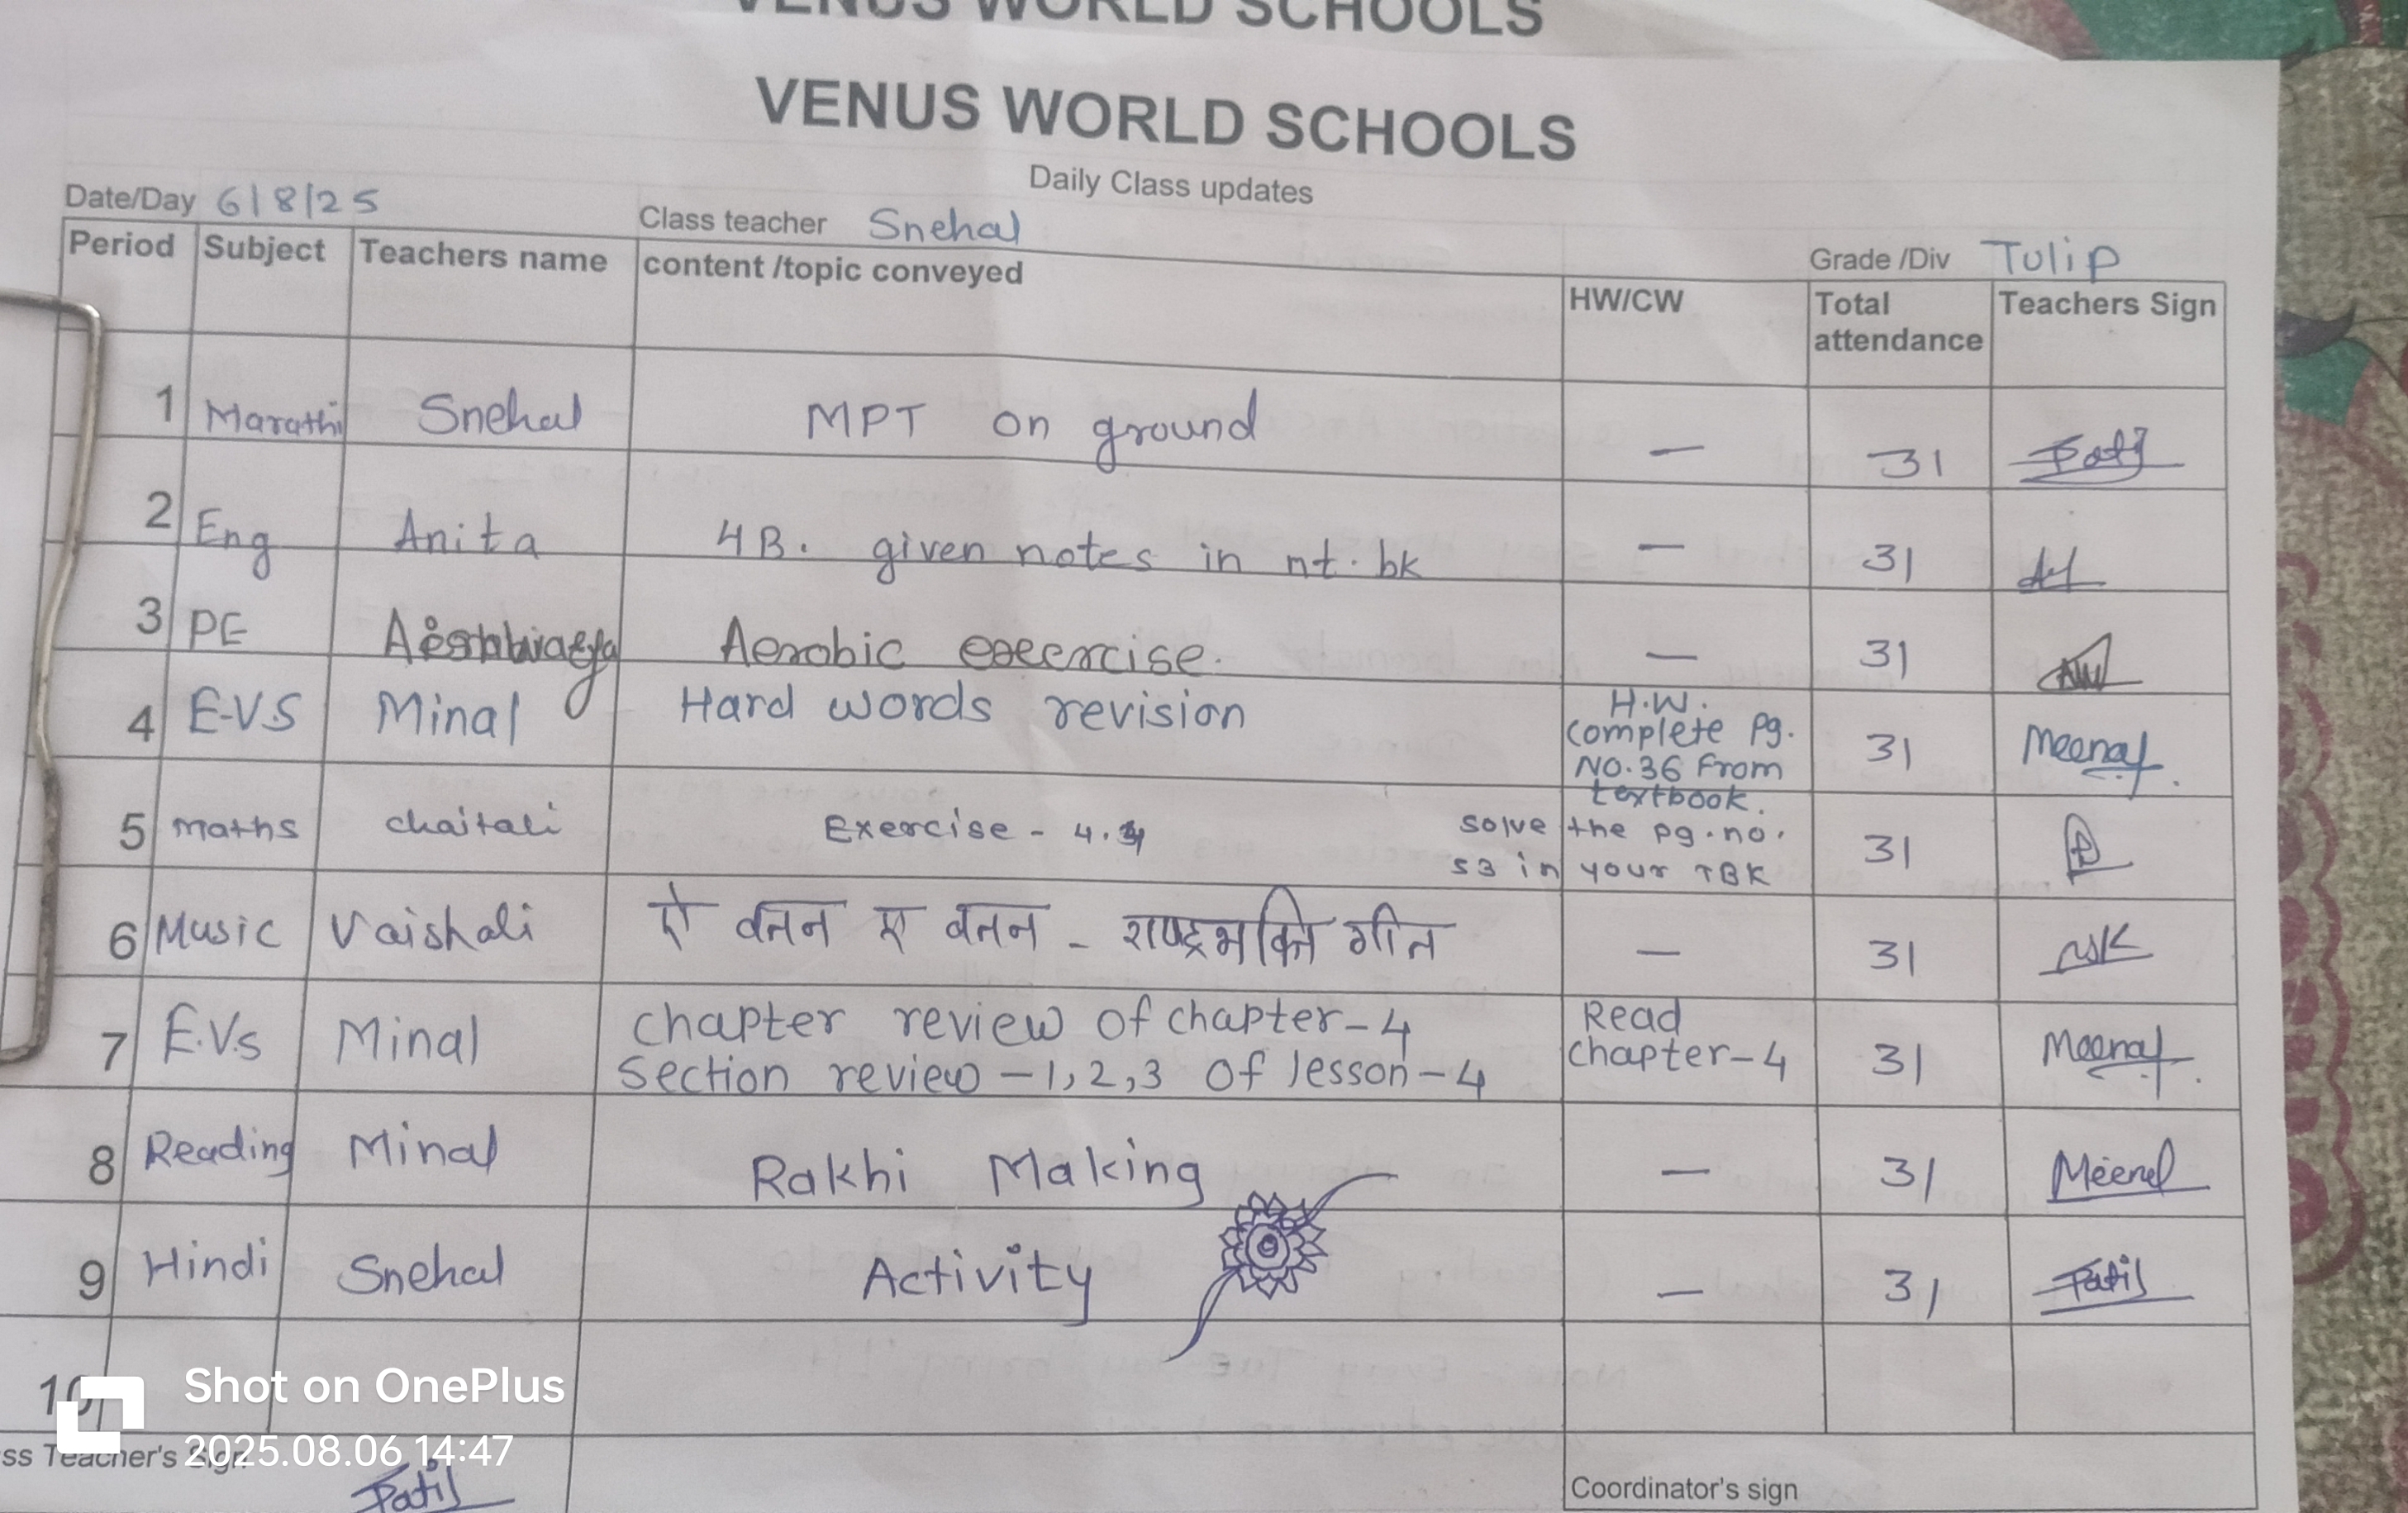 VENUS WORLD SCHOOLS
VENUS WORLD SCHOOLS
Daily Class updates
Date/Day 6/8/25
Class teacher Snehal
Grade /Div Tulip
Period Subject Teachers name content /topic conveyed HW/CW Total attendance Teachers Sign
1 Marathi Snehal MPT on ground — 31
2 Eng Anita 4B. given notes in nt. bk — 31
3 PE Aerobic — 31
4 E.V.S Minal Hard words revision H.W. complete pg. NO.36 From textbook. 31 Meenal
5 maths chaitali Exercise - 4. solve the pg.no. 53 in your TBK 31
6 Music Vaishali ऐ वतन ए वतन - राष्ट्रभक्ति गीत — 31
7 E.V.s Minal chapter review of chapter-4 Read chapter-4 31 Meenal
Section review -1,2,3 of lesson-4
8 Reading Minal Rakhi Making — 31 Meenal
9 Hindi Snehal Activity — 31 Patil
10
ss Teacher's Sign Patil
Coordinator's sign
Shot on OnePlus
2025.08.06 14:47